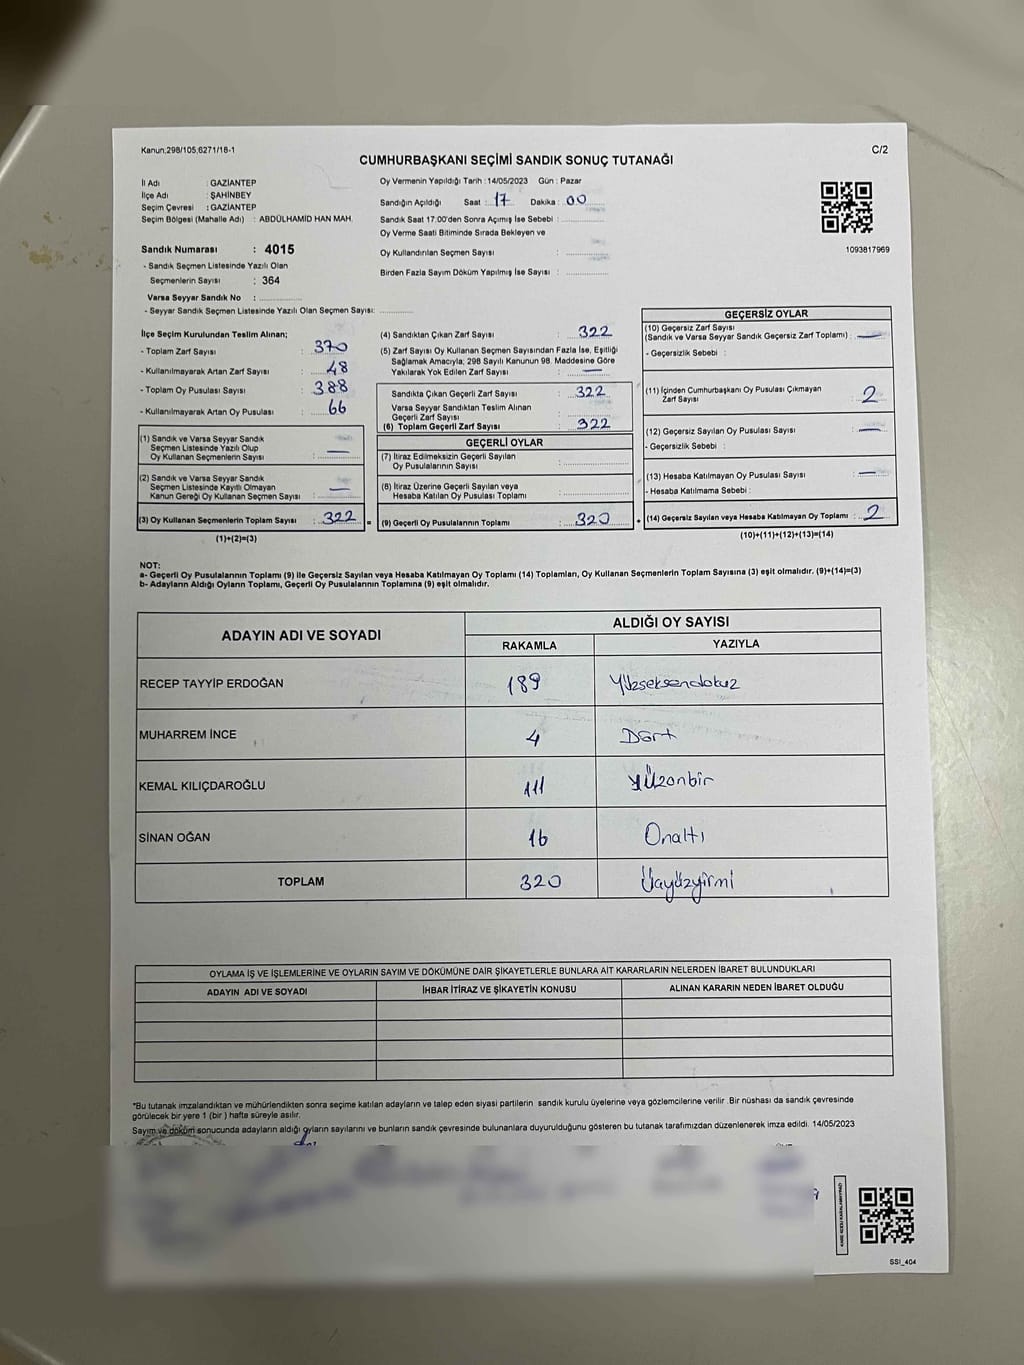 Kanun;298/105,6271/18-1
C/2
CUMHURBAŞKANI SEÇİMİ SANDIK SONUÇ TUTANAĞI
İl Adı : GAZİANTEP
İlçe Adı : ŞAHİNBEY
Seçim Çevresi : GAZİANTEP
Seçim Bölgesi (Mahalle Adı) : ABDÜLHAMİD HAN MAH.
Oy Vermenin Yapıldığı Tarih :14/05/2023 Gün : Pazar
Sandığın Açıldığı Saat : 17 Dakika : 00
Sandık Saat 17.00'den Sonra Açımış İse Sebebi :
Oy Verme Saati Bitiminde Sırada Bekleyen ve
Oy Kullandırılan Seçmen Sayısı :
Birden Fazla Sayım Döküm Yapılmış İse Sayısı :
1093817969
Sandık Numarası : 4015
- Sandık Seçmen Listesinde Yazılı Olan
Seçmenlerin Sayısı : 364
Varsa Seyyar Sandık No :
- Seyyar Sandık Seçmen Listesinde Yazılı Olan Seçmen Sayısı:
İlçe Seçim Kurulundan Teslim Alınan;
- Toplam Zarf Sayısı : 370
- Kullanılmayarak Artan Zarf Sayısı : 48
- Toplam Oy Pusulası Sayısı : 388
- Kullanılmayarak Artan Oy Pusulası : 66
(1) Sandık ve Varsa Seyyar Sandık
Seçmen Listesinde Yazılı Olup
Oy Kullanan Seçmenlerin Sayısı : —
(2) Sandık ve Varsa Seyyar Sandık
Seçmen Listesinde Kayıtlı Olmayan
Kanun Gereği Oy Kullanan Seçmen Sayısı : —
(3) Oy Kullanan Seçmenlerin Toplam Sayısı : 322 =
(1)+(2)=(3)
(4) Sandıktan Çıkan Zarf Sayısı : 322
(5) Zarf Sayısı Oy Kullanan Seçmen Sayısından Fazla İse, Eşitliği
Sağlamak Amacıyla; 298 Sayılı Kanunun 98. Maddesine Göre
Yakılarak Yok Edilen Zarf Sayısı : —
Sandıkta Çıkan Geçerli Zarf Sayısı : 322
Varsa Seyyar Sandıktan Teslim Alınan
Geçerli Zarf Sayısı :
(6) Toplam Geçerli Zarf Sayısı : 322
GEÇERLİ OYLAR
(7) İtiraz Edilmeksizin Geçerli Sayılan
Oy Pusulalarının Sayısı :
(8) İtiraz Üzerine Geçerli Sayılan veya
Hesaba Katılan Oy Pusulası Toplamı :
(9) Geçerli Oy Pusulalarının Toplamı : 320 +
GEÇERSİZ OYLAR
(10) Geçersiz Zarf Sayısı
(Sandık ve Varsa Seyyar Sandık Geçersiz Zarf Toplamı) : —
- Geçersizlik Sebebi :
(11) İçinden Cumhurbaşkanı Oy Pusulası Çıkmayan
Zarf Sayısı : 2
(12) Geçersiz Sayılan Oy Pusulası Sayısı : —
- Geçersizlik Sebebi :
(13) Hesaba Katılmayan Oy Pusulası Sayısı : —
- Hesaba Katılmama Sebebi :
(14) Geçersiz Sayılan veya Hesaba Katılmayan Oy Toplamı : 2
(10)+(11)+(12)+(13)=(14)
NOT:
a- Geçerli Oy Pusulalarının Toplamı (9) ile Geçersiz Sayılan veya Hesaba Katılmayan Oy Toplamı (14) Toplamları, Oy Kullanan Seçmenlerin Toplam Sayısına (3) eşit olmalıdır. (9)+(14)=(3)
b- Adayların Aldığı Oyların Toplamı, Geçerli Oy Pusulalarının Toplamına (9) eşit olmalıdır.
ADAYIN ADI VE SOYADI ALDIĞI OY SAYISI
RAKAMLA YAZIYLA
RECEP TAYYİP ERDOĞAN 189 Yüzseksendokuz
MUHARREM İNCE 4 Dört
KEMAL KILIÇDAROĞLU 111 Yüzonbir
SİNAN OĞAN 16 Onaltı
TOPLAM 320 Üçyüzyirmi
OYLAMA İŞ VE İŞLEMLERİNE VE OYLARIN SAYIM VE DÖKÜMÜNE DAİR ŞİKAYETLERLE BUNLARA AİT KARARLARIN NELERDEN İBARET BULUNDUKLARI
ADAYIN ADI VE SOYADI İHBAR İTİRAZ VE ŞİKAYETİN KONUSU ALINAN KARARIN NEDEN İBARET OLDUĞU
*Bu tutanak imzalandıktan ve mühürlendikten sonra seçime katılan adayların ve talep eden siyasi partilerin sandık kurulu üyelerine veya gözlemcilerine verilir .Bir nüshası da sandık çevresinde
görülecek bir yere 1 (bir ) hafta süreyle asılır.
Sayım ve döküm sonucunda adayların aldığı oyların sayılarını ve bunların sandık çevresinde bulunanlara duyurulduğunu gösteren bu tutanak tarafımızdan düzenlenerek imza edildi. 14/05/2023
SSI_404